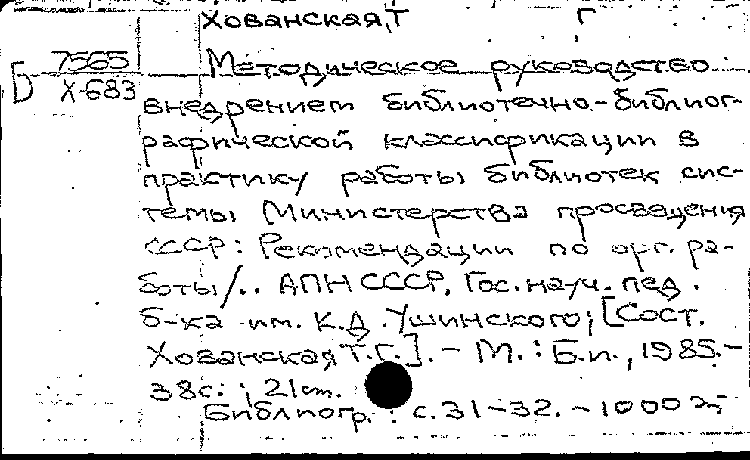 Хованская, Т Г
Б 7565
Х-683
Методическое руководство
внедрением библиотечно-библиог-
рафической классификации в
практику работы библиотек сис-
темы Министерства просвещения
СССР: Рекомендации по орг. ра-
боты/.. АПН СССР, Гос. науч. пед.
б-ка им. К.Д. Ушинского; [Сост.
Хованская Т.Г.]. - М.: Б.и., 1985.-
38с.; 21см.
Библиогр.: с. 31-32. - 1000